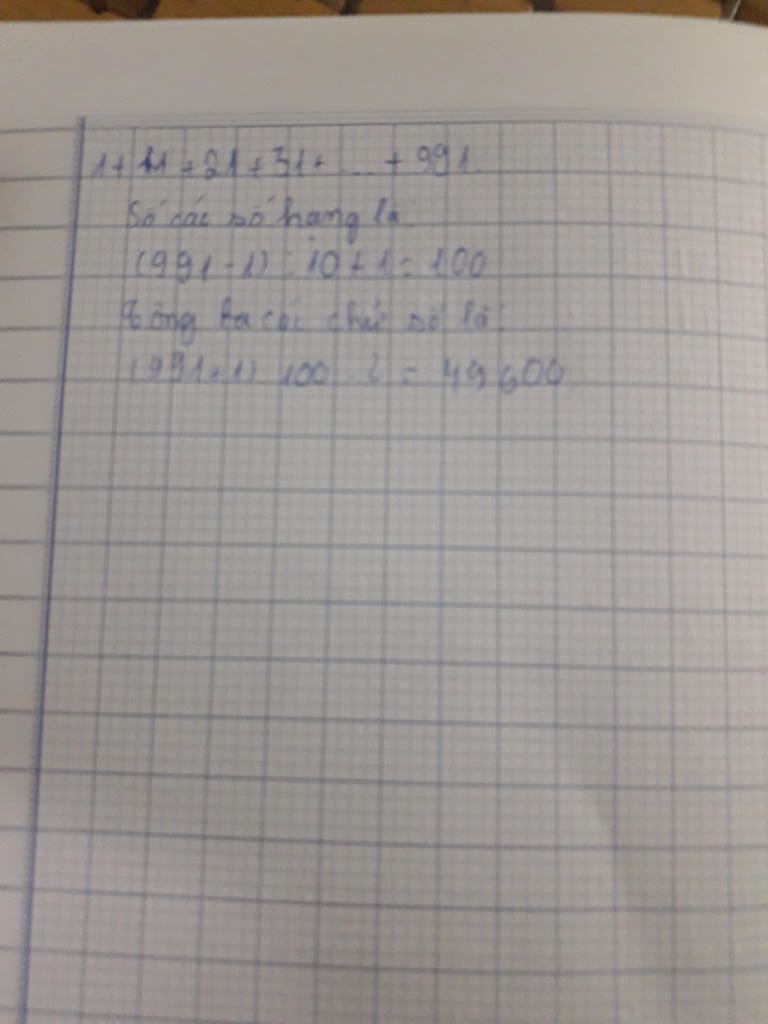 1 + 11 + 21 + 31 + ... + 991
Số các số hạng là:
(991 - 1) : 10 + 1 = 100
Tổng các chữ số là:
(991 + 1) . 100 : 2 = 49 600